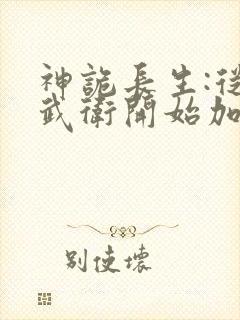 神詭長生:從
武衛開始加
别使壞